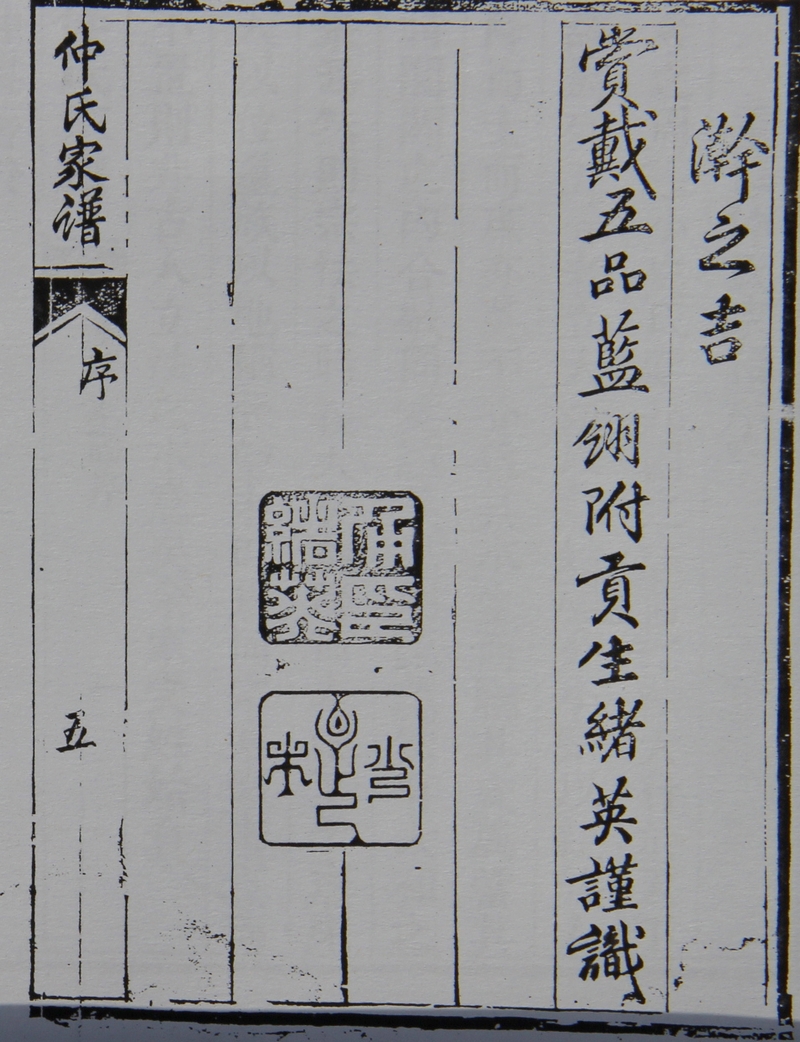 澣之吉
賞戴五品藍翎附貢生緒英謹識
緒英
仲氏家谱
序
五